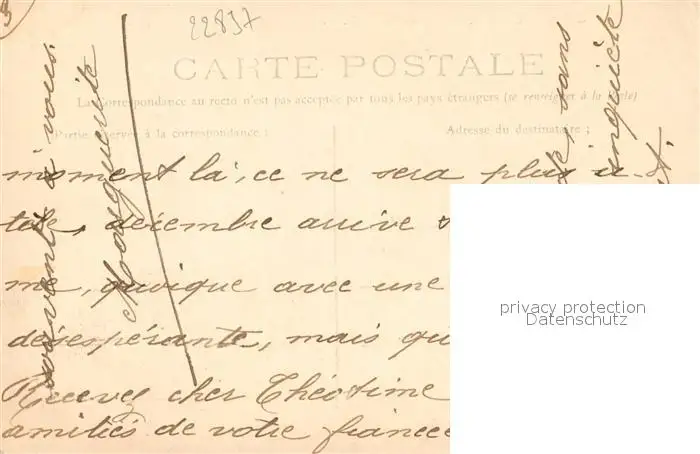 22857
CARTE POSTALE
La Correspondance au recto n'est pas acceptée par tous les pays étrangers (se renseigner à la Poste)
Partie réservée à la correspondance :
Adresse du destinataire :
moment là, ce ne sera plus
décembre arrive
me, quoique avec une
désespérante, mais qu
Recevez cher Théotime
amitiés de votre fiancée
à vous.
Marguerite
sans
inquiète
privacy protection
Datenschutz